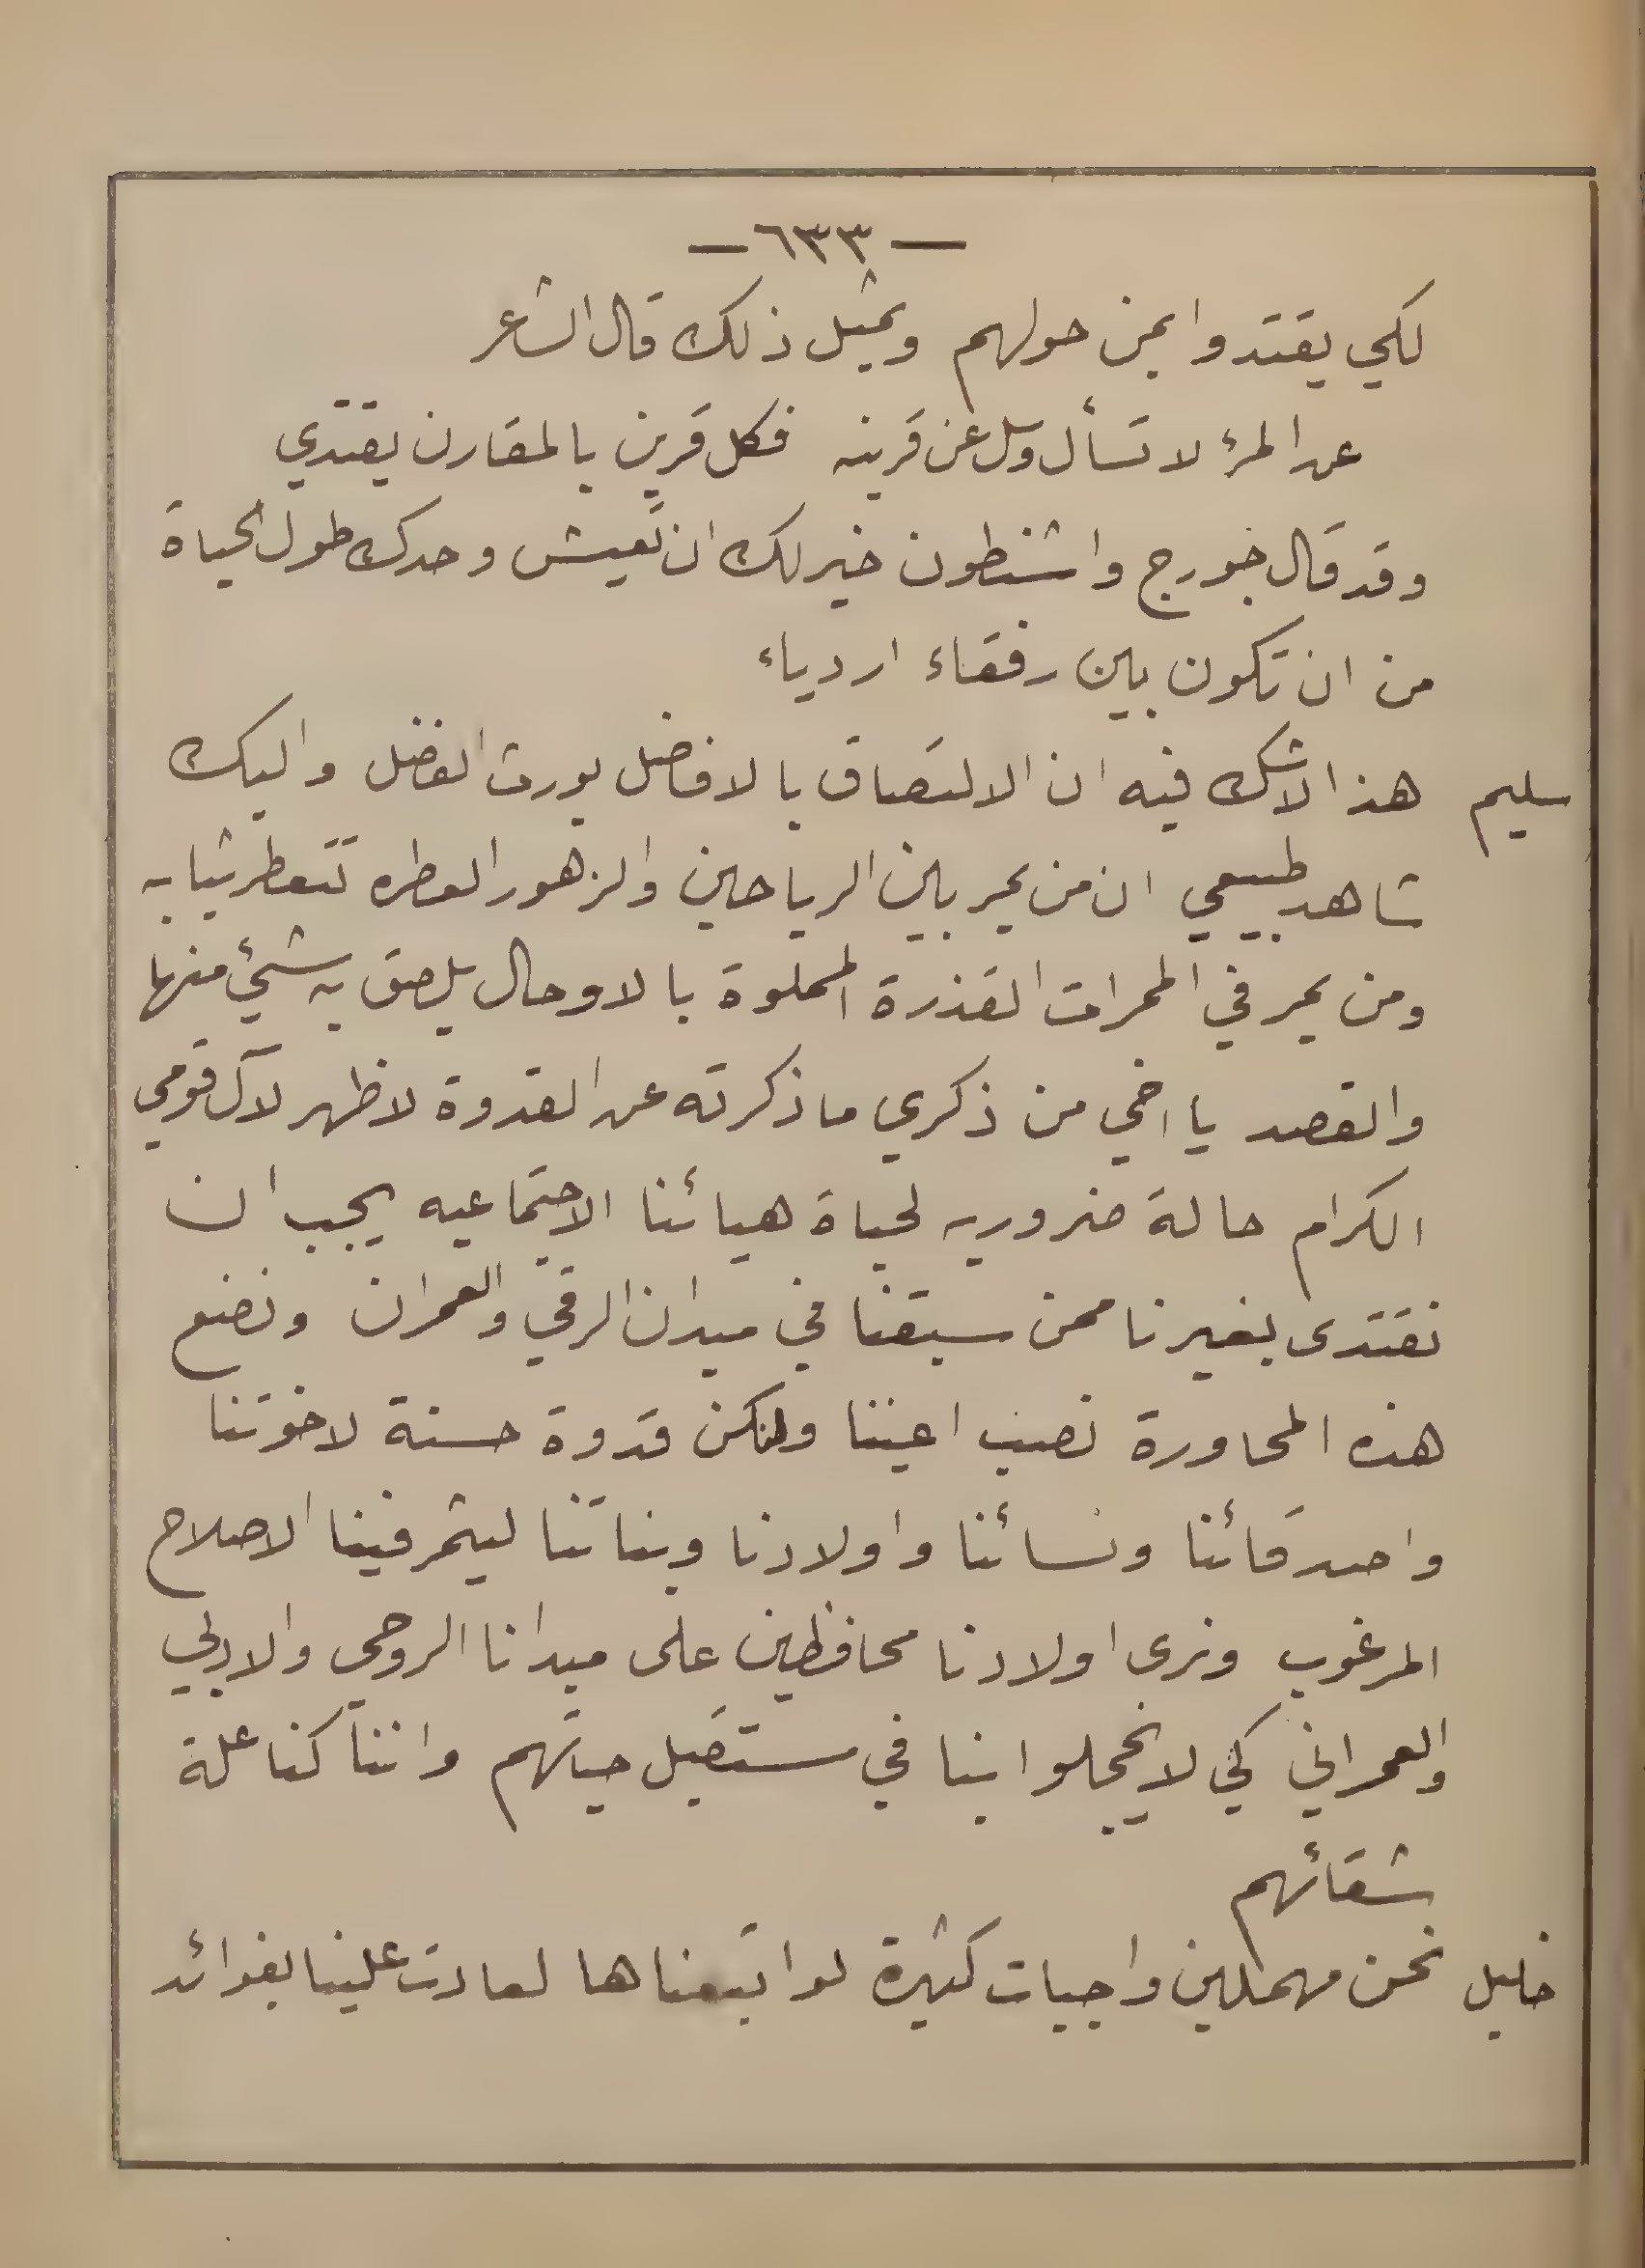 — ٦٣٣ —
لكي يقتدوا بمن حولهم وبمثل ذلك قال الشاعر
عن المرء لا تسأل وسل عن قرينه فكل قرين بالمقارن يقتدي
وقد قال جورج واشنطون خير لك ان تعيش وحدك طول الحياة
من ان تكون بين رفقاء اردياء
سليم هذا لا شك فيه ان الالتصاق بالافاضل يورث الفضل واليك
شاهد طبيعي ان من يمر بين الرياحين والزهور العطره تتعطر ثيابه
ومن يمر في الممرات القذرة المملوة بالاوحال يلصق به شئ منها
والقصد يا اخي من ذكري ما ذكرته عن القدوة لاظهر لآل قومي
الكرام حالة ضروريه لحياة هيائنا الاجتماعيه يجب ان
نقتدى بغيرنا ممن سبقنا في ميدان الرقي والعمران ونضع
هذه المحاورة نصب اعيننا ولنكن قدوة حسنة لاخوتنا
واصدقائنا ونسائنا واولادنا وبناتنا ليثمر فينا الاصلاح
المرغوب ونرى اولادنا محافظين على ميدانا الروحي والادبي
والعمراني كي لا يخجلوا بنا في مستقبل حياتهم واننا كنا علة
شقائهم
خليل نحن مهملين واجبات كثيرة لو اتبعناها لعادت علينا بفوائد